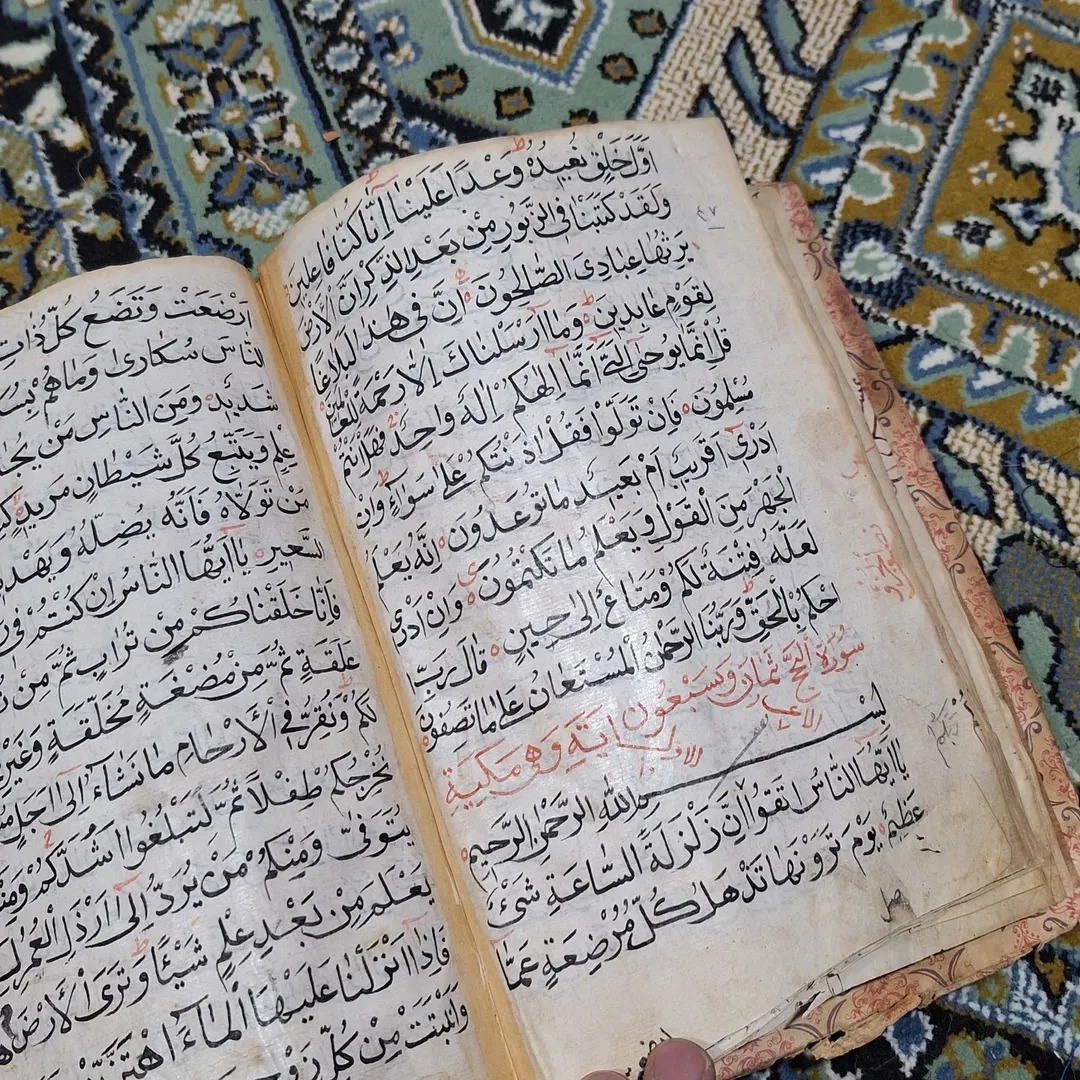 اوّل خلق نعيده وعدا علينا انّا كنّا فاعلين
ولقد كتبنا في الزّبور من بعد الذّكر انّ الارض
يرثها عبادى الصّالحون انّ في هذا لبلاغا
لقوم عابدين وما ارسلناك الّا رحمة للعالمين
قل انّما يوحى الىّ انّما الهكم اله واحد فهل انتم
مسلمون فان تولّوا فقل اذنتكم على سواء وان
ادرى اقريب ام بعيد ما توعدون انّه يعلم
الجهر من القول ويعلم ما تكتمون وان ادرى
لعلّه فتنة لكم ومتاع الى حين قال ربّ
احكم بالحقّ وربّنا الرّحمن المستعان على ما تصفون
سورة الحجّ ثمان وسبعون اية وهى مكية
بسم الله الرّحمن الرّحيم
يا ايّها النّاس اتّقوا انّ زلزلة السّاعة شىء
عظيم يوم ترونها تذهل كلّ مرضعة عمّا
ارضعت وتضع كلّ ذات
النّاس سكارى وما هم بسكا
شديد ومن النّاس من يجا
علم ويتّبع كلّ شيطان مريد
من تولّاه فانّه يضلّه ويهد
السّعير يا ايّها النّاس ان كنتم فى
فانّا خلقناكم من تراب ثمّ من
علقة ثمّ من مضغة مخلّقة وغير
لكم ونقرّ فى الارحام ما نشاء الى اجل
نخرجكم طفلا ثمّ لتبلغوا اشدّكم ومن
يتوفّى ومنكم من يردّ الى ارذل العمر
يعلم من بعد علم شيئا وترى الارض
فاذا انزلنا عليها الماء اهتزّت
وانبتت من كلّ زوج